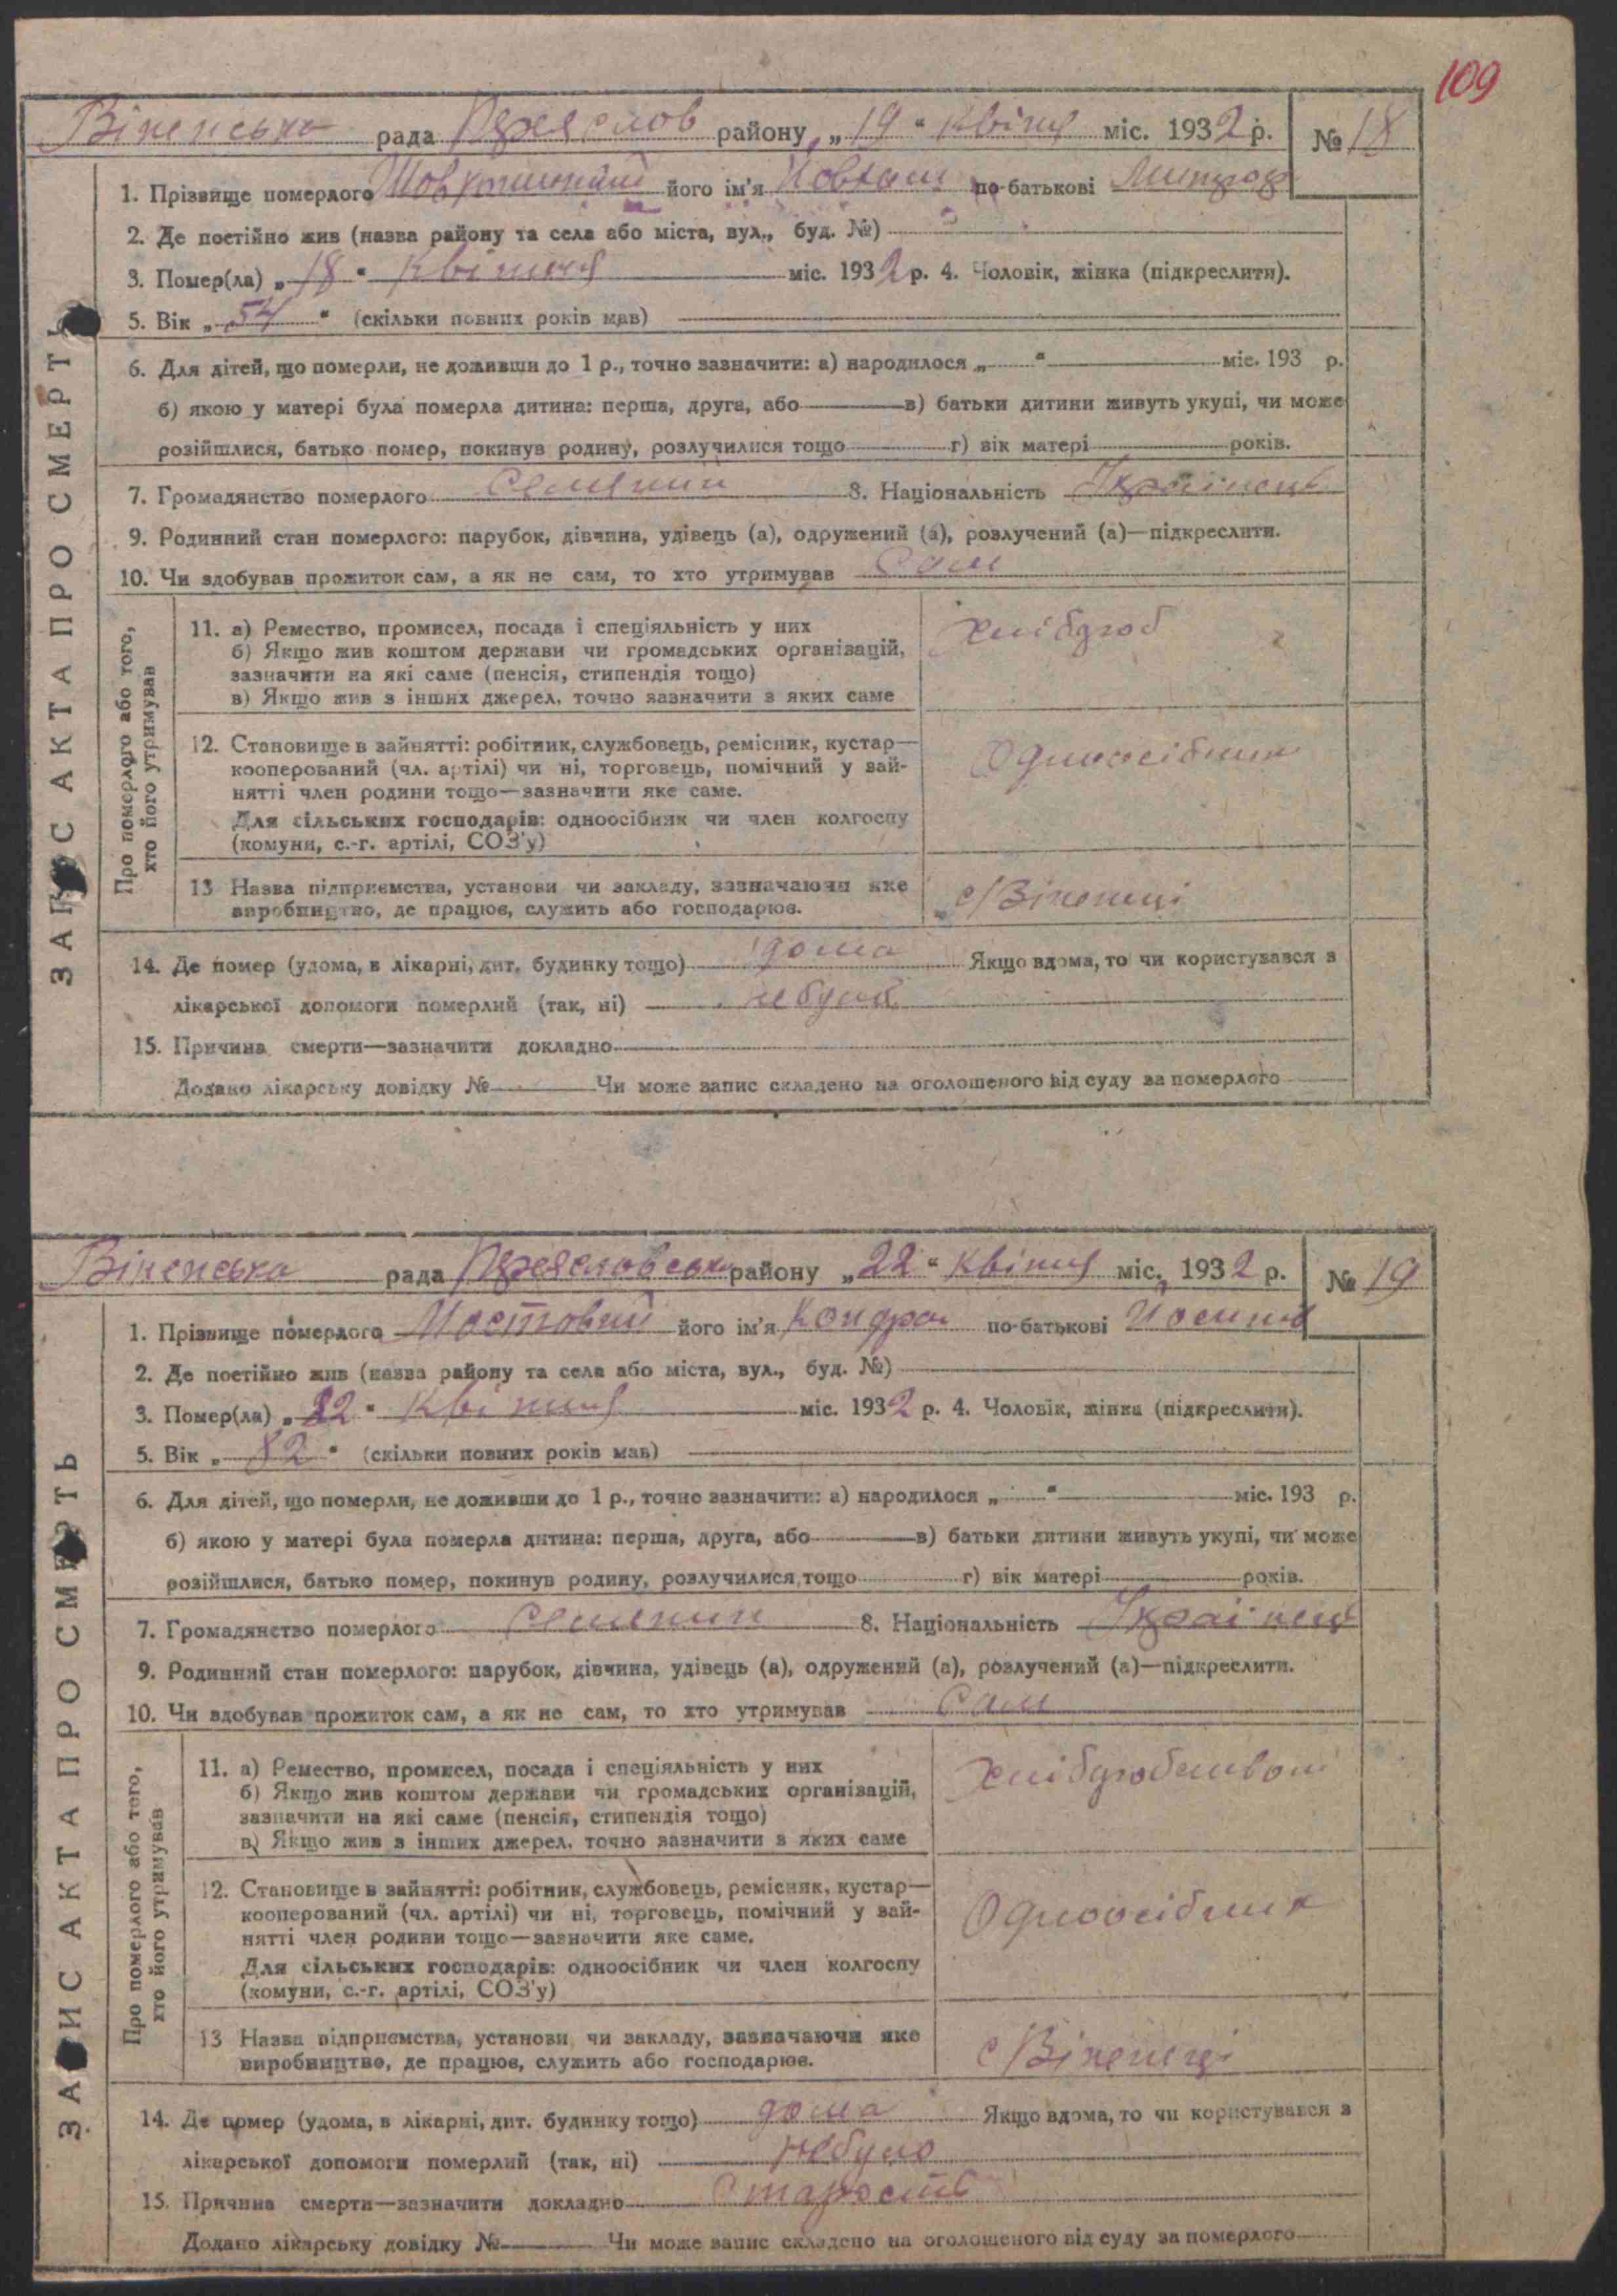 109
Віненська рада Переяслов району, „19“ квітня міс. 1932 р. № 18
1. Прізвище померлого його ім'я по-батькові
2. Де постійно жив (назва району та села або міста, вул., буд. №)
3. Помер(ла) „18“ квітня міс. 1932 р. 4. Чоловік, жінка (підкреслити).
5. Вік „54“ (скільки повних років мав)
6. Для дітей, що померли, не доживши до 1 р., точно зазначити: а) народилося „ “ міс. 193 р.
б) якою у матері була померла дитина: перша, друга, або в) батьки дитини живуть укупі, чи може
розійшлися, батько помер, покинув родину, розлучилися тощо г) вік матері років.
7. Громадянство померлого Селянин 8. Національність Українець
9. Родинний стан померлого: парубок, дівчина, удівець (а), одружений (а), розлучений (а)—підкреслити.
10. Чи здобував прожиток сам, а як не сам, то хто утримував Сам
ЗАПИС АКТА ПРО СМЕРТЬ
Про померлого або того,
хто його утримував
11. а) Ремество, промисел, посада і спеціяльність у них Хлібороб
б) Якщо жив коштом держави чи громадських організацій,
зазначити на які саме (пенсія, стипендія тощо)
в) Якщо жив з інших джерел, точно зазначити з яких саме
12. Становище в зайнятті: робітник, службовець, ремісник, кустар— Одноосібник
кооперований (чл. артілі) чи ні, торговець, помічний у зай-
нятті член родини тощо—зазначити яке саме.
Для сільських господарів: одноосібник чи член колгоспу
(комуни, с.-г. артілі, СОЗ'у)
13 Назва підприємства, установи чи закладу, зазначаючи яке с/Віненці
виробництво, де працює, служить або господарює.
14. Де помер (удома, в лікарні, дит. будинку тощо) дома Якщо вдома, то чи користувався з
лікарської допомоги померлий (так, ні)
15. Причина смерти—зазначити докладно
Додано лікарську довідку № Чи може запис складено на оголошеного від суду за померлого
Віненська рада Переясловськ району „22“ квітня міс. 1932 р. № 19
1. Прізвище померлого Мостовий його ім'я Кондрат по-батькові Йосипов
2. Де постійно жив (назва району та села або міста, вул., буд. №)
3. Помер(ла) „22“ квітня міс. 1932 р. 4. Чоловік, жінка (підкреслити).
5. Вік „82“ (скільки повних років мав)
6. Для дітей, що померли, не доживши до 1 р., точно зазначити: а) народилося „ “ міс. 193 р.
б) якою у матері була померла дитина: перша, друга, або в) батьки дитини живуть укупі, чи може
розійшлися, батько помер, покинув родину, розлучилися тощо г) вік матері років.
7. Громадянство померлого Селянин 8. Національність Українець
9. Родинний стан померлого: парубок, дівчина, удівець (а), одружений (а), розлучений (а)—підкреслити.
10. Чи здобував прожиток сам, а як не сам, то хто утримував Сам
ЗАПИС АКТА ПРО СМЕРТЬ
Про померлого або того,
хто його утримував
11. а) Ремество, промисел, посада і спеціяльність у них
б) Якщо жив коштом держави чи громадських організацій,
зазначити на які саме (пенсія, стипендія тощо)
в) Якщо жив з інших джерел, точно зазначити з яких саме
12. Становище в зайнятті: робітник, службовець, ремісник, кустар— Одноосібник
кооперований (чл. артілі) чи ні, торговець, помічний у зай-
нятті член родини тощо—зазначити яке саме.
Для сільських господарів: одноосібник чи член колгоспу
(комуни, с.-г. артілі, СОЗ'у)
13 Назва підприємства, установи чи закладу, зазначаючи яке
виробництво, де працює, служить або господарює. с/Віненці
14. Де помер (удома, в лікарні, дит. будинку тощо) дома Якщо вдома, то чи користувався з
лікарської допомоги померлий (так, ні) небуло
15. Причина смерти—зазначити докладно Старость
Додано лікарську довідку № Чи може запис складено на оголошеного від суду за померлого